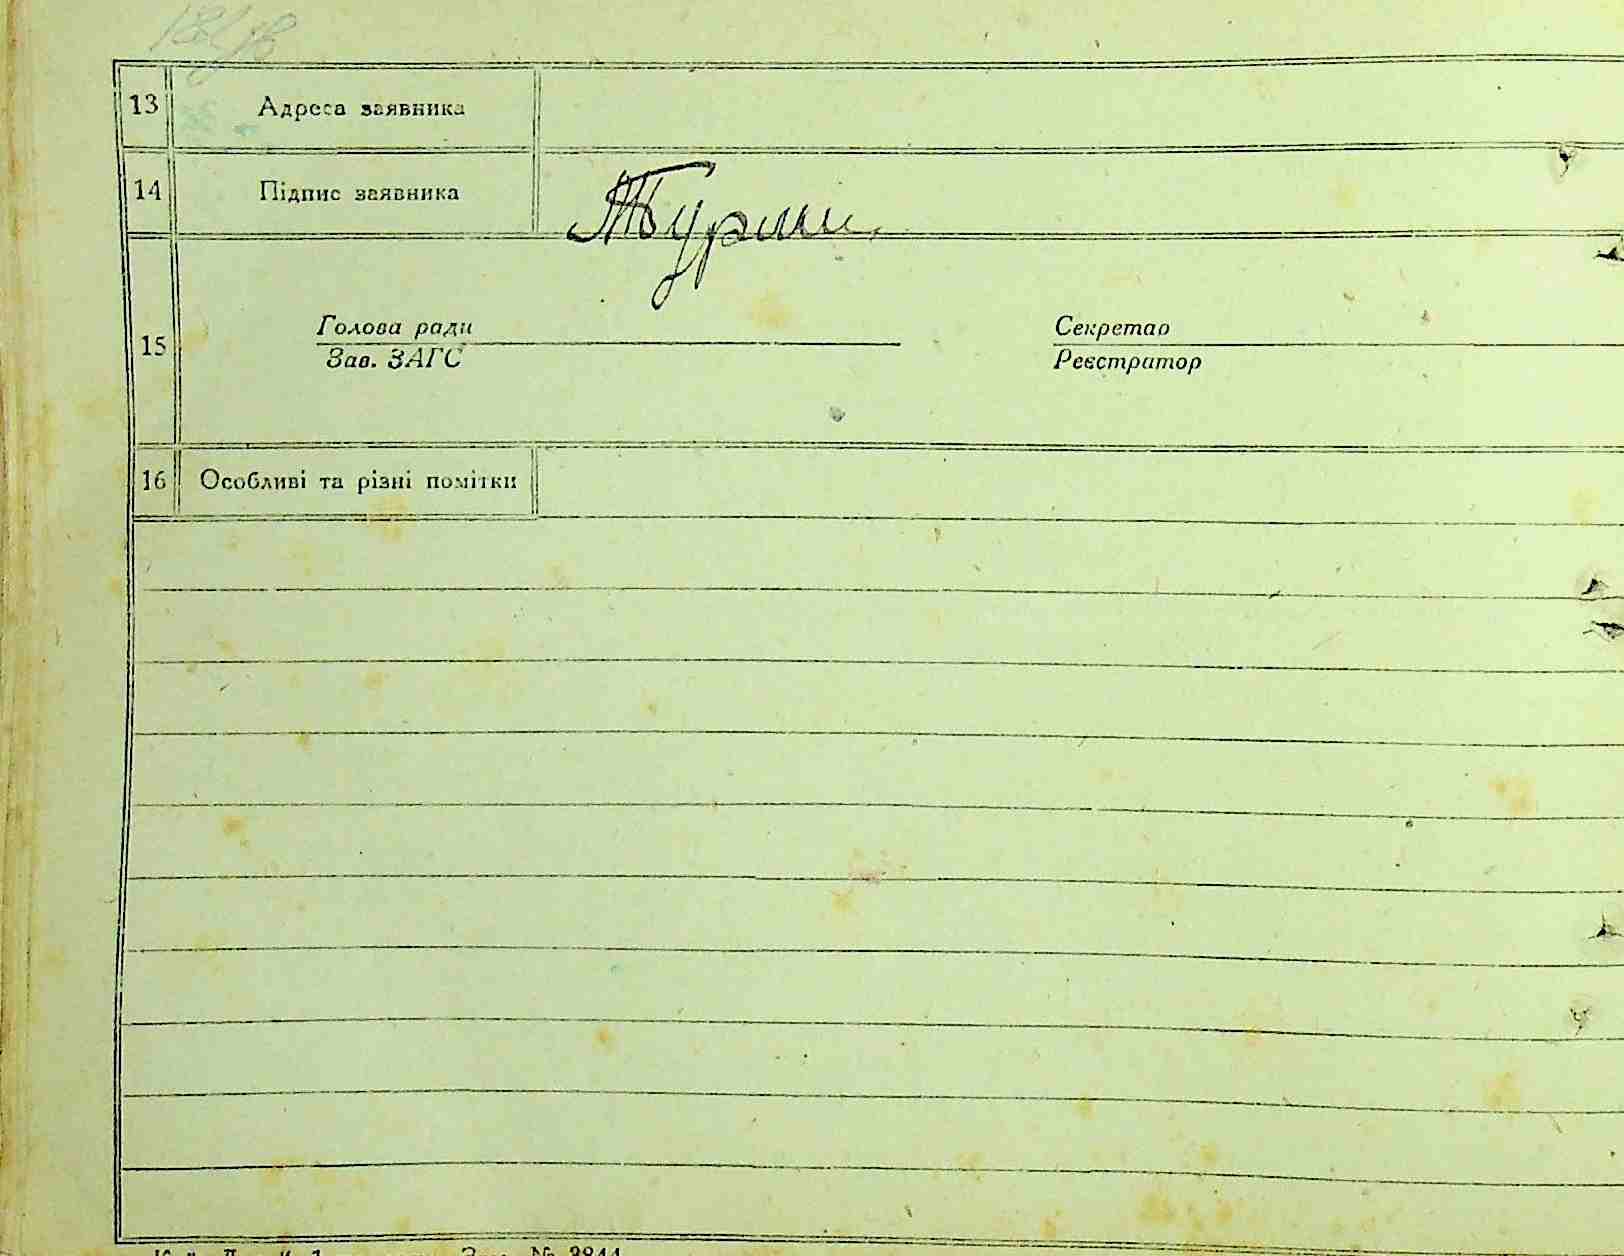 13 Адреса заявника
14 Підпис заявника
15
Голова ради
Зав. ЗАГС
Секретар
Реєстратор
16 Особливі та різні помітки
№ 3844